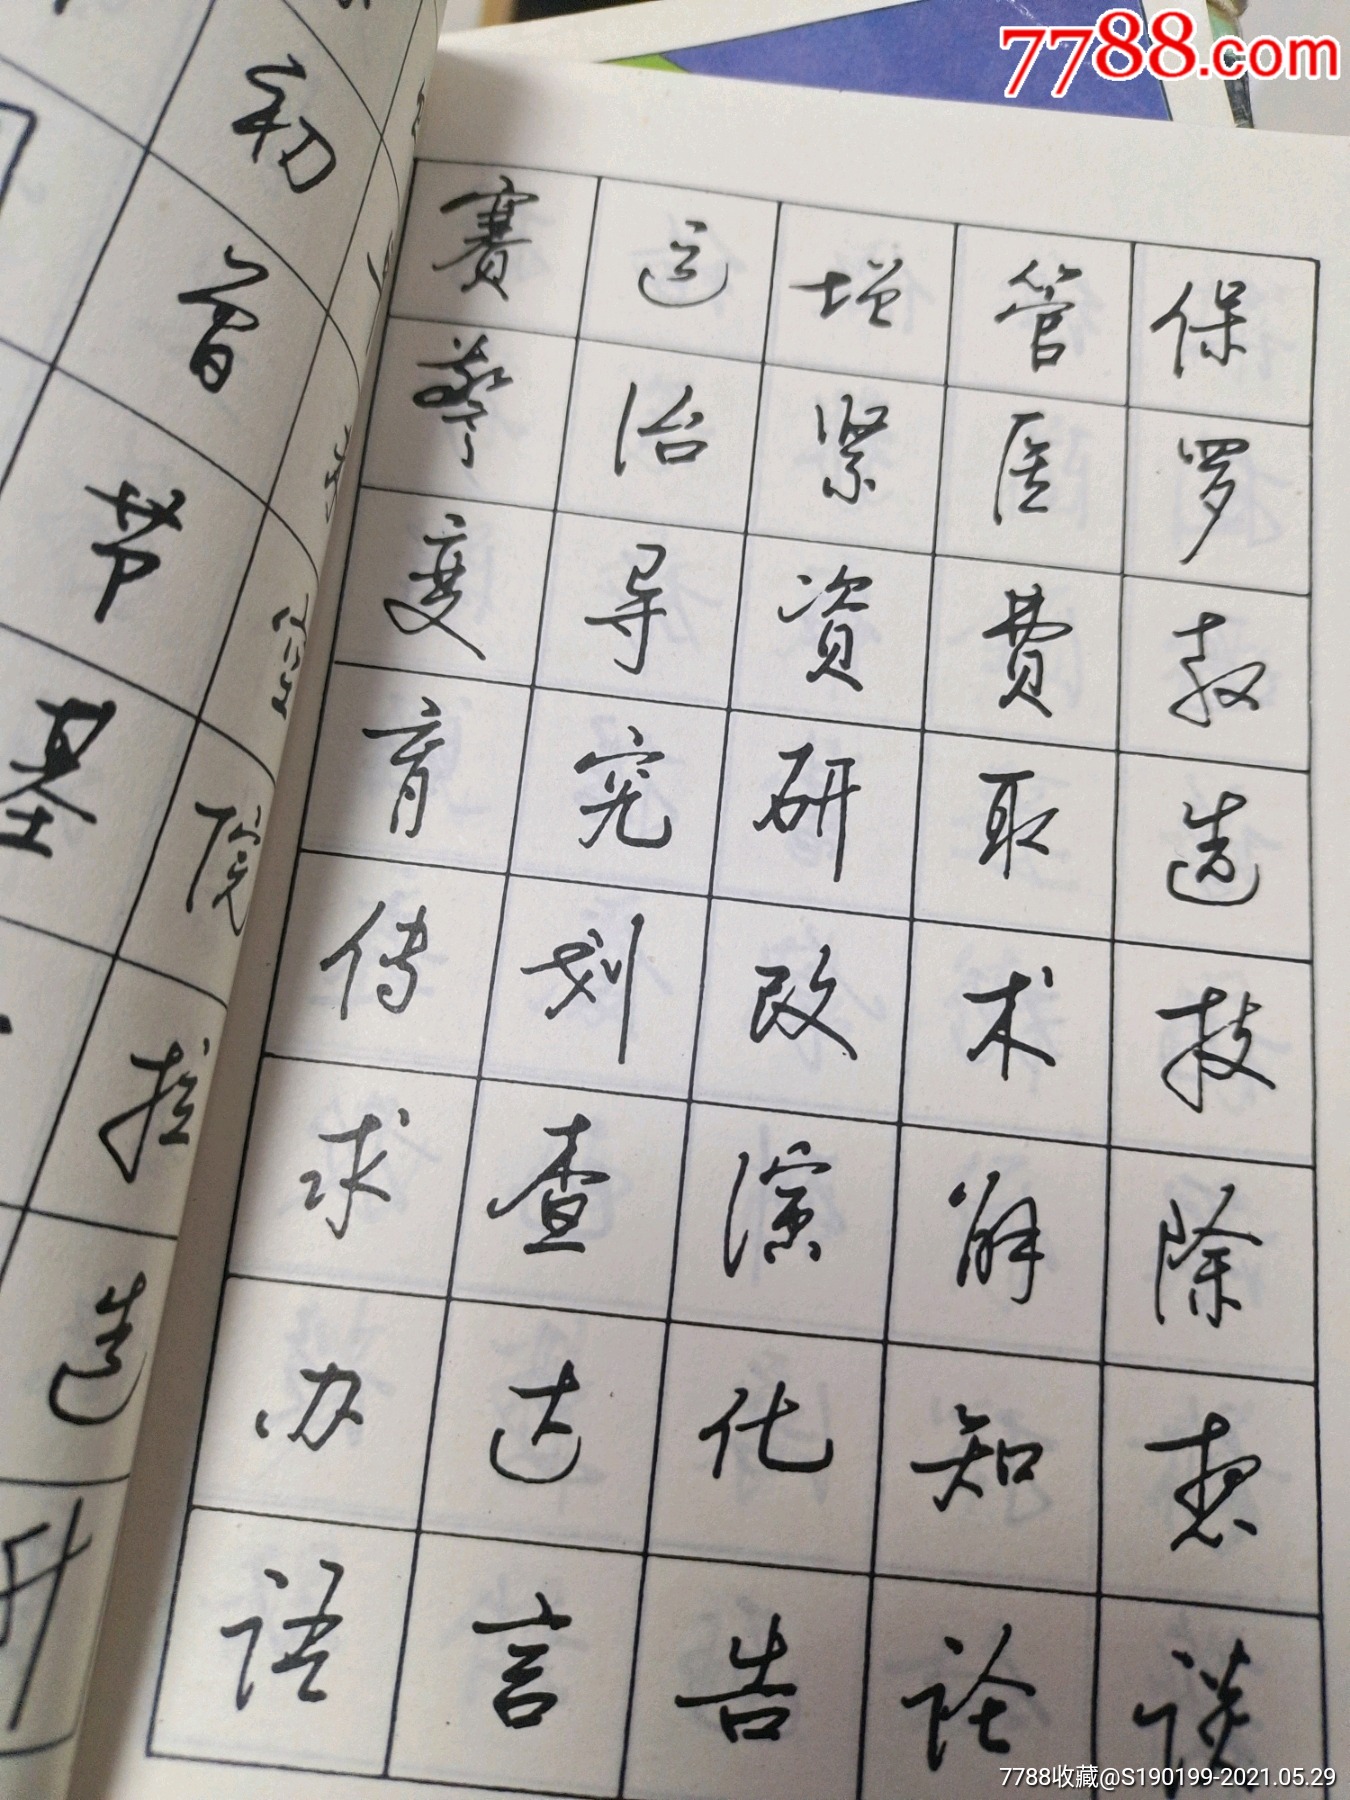 7788.com
初
首
节
基
院
拉
造
赛 运 增 管 保
警 治 紧 医 罗
度 导 资 费 教
育 究 研 取 造
传 划 改 术 技
求 查 演 解 除
办 达 化 知 想
语 言 告 论 谈
7788收藏@S190199-2021.05.29